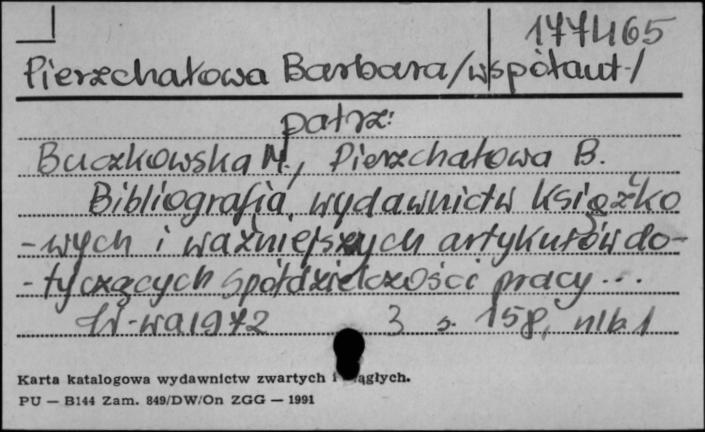 177465
Pierzchałowa Barbara /współaut./
patrz:
Buczkowska M., Pierzchałowa B.
Bibliografia wydawnictw książko
-wych i ważniejszych artykułów do-
-tyczących spółdzielczości pracy...
W-wa 1972 3 s. 158, nlb. 1
Karta katalogowa wydawnictw zwartych i ągłych.
PU — B144 Zam. 849/DW/On ZGG — 1991